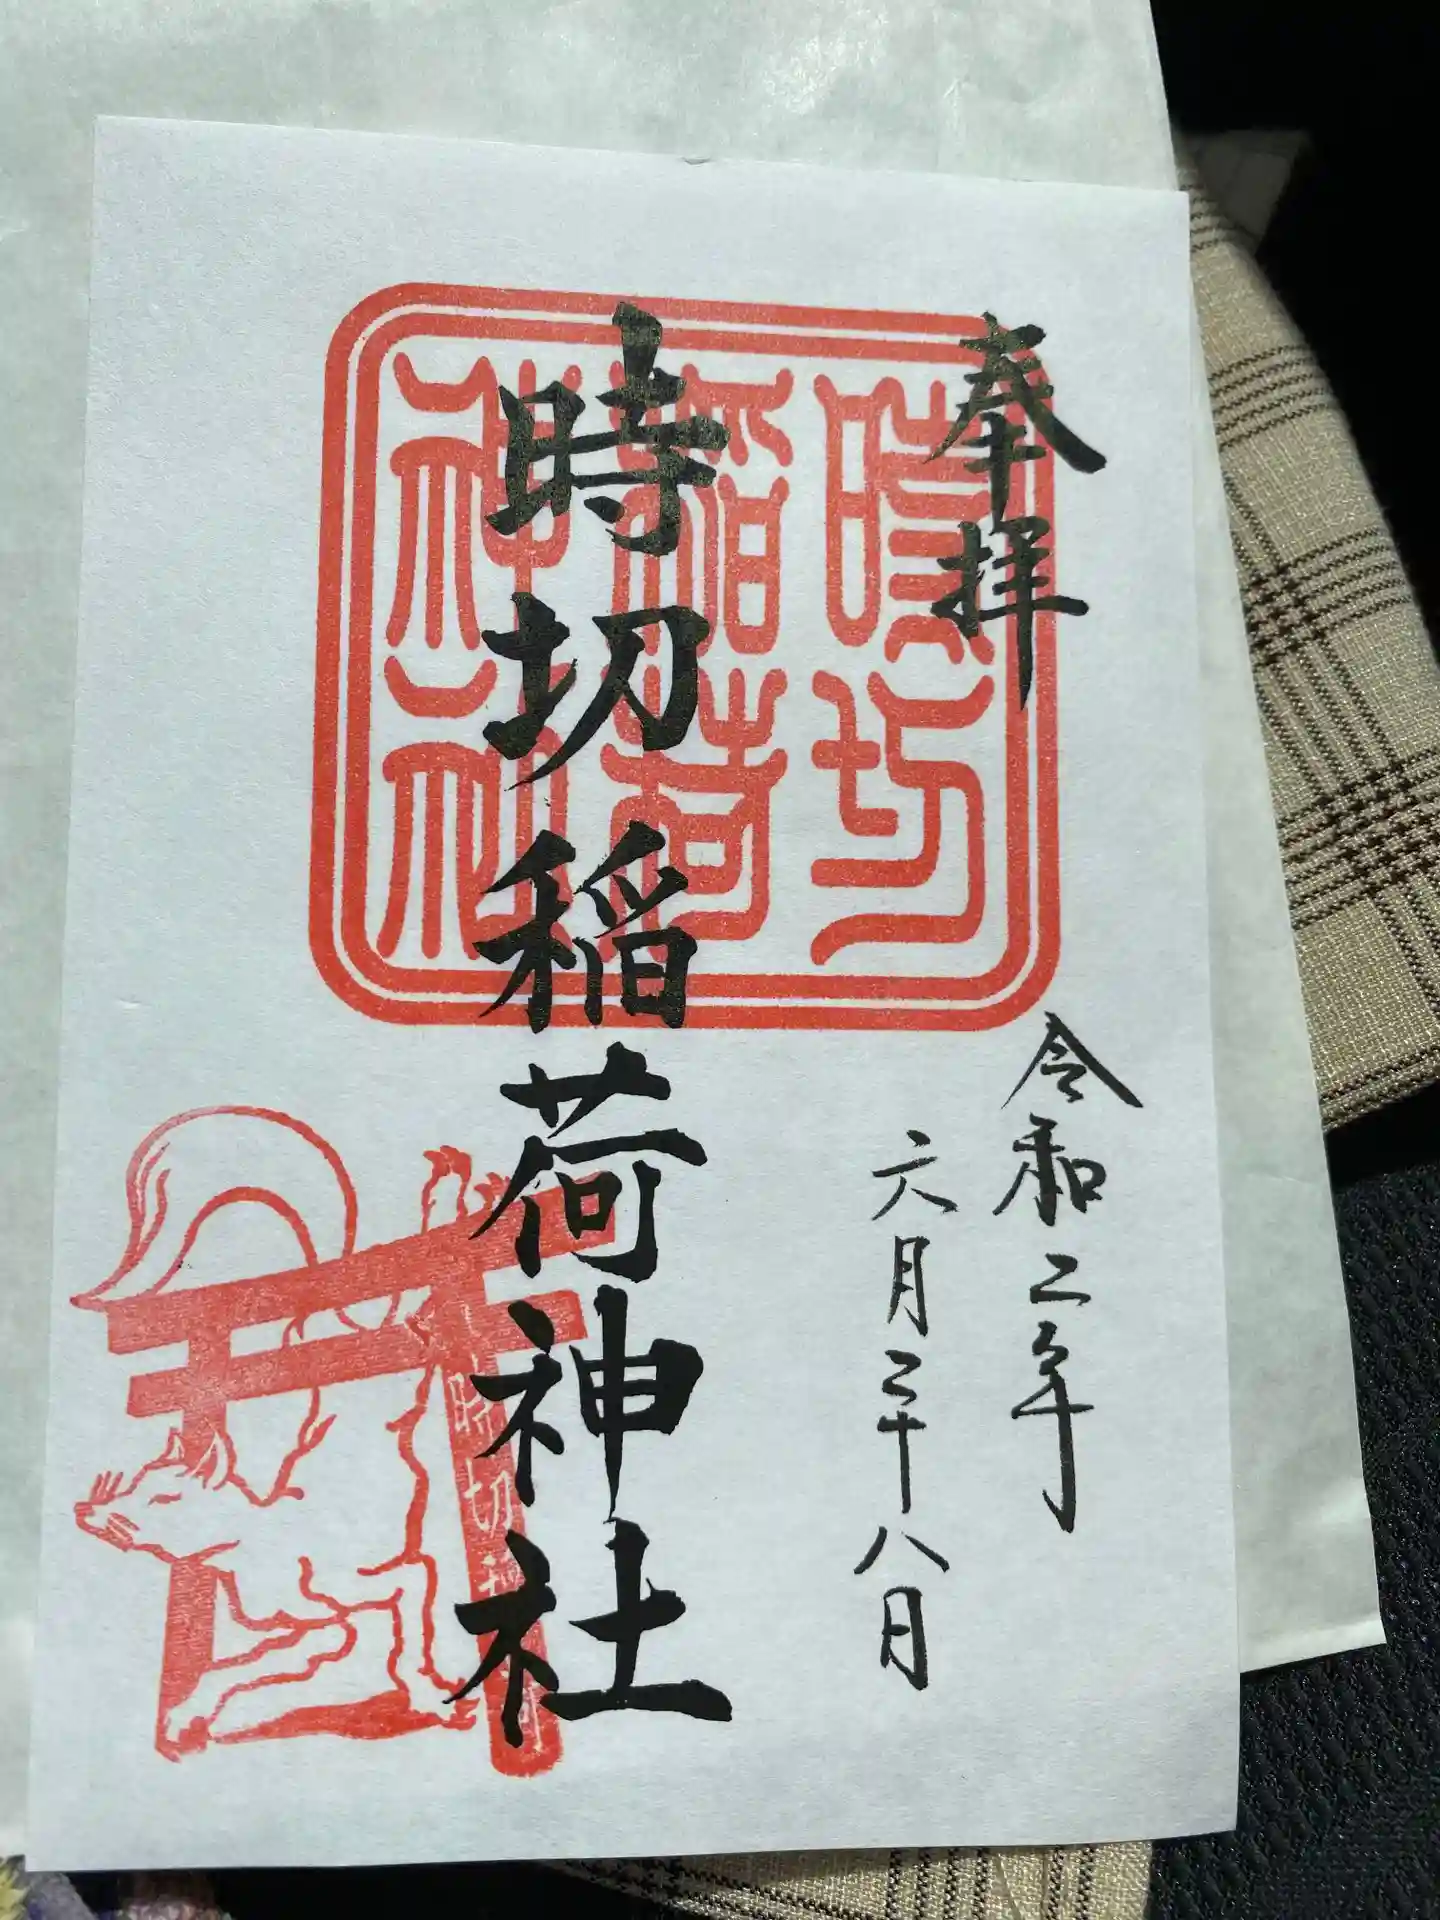 奉拝
令和二年
六月二十八日
時切稲荷神社
時切
稲荷
神社
時切